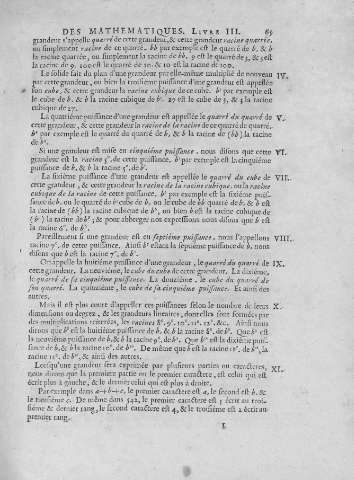 DES MATHEMATIQUES. LIVRE III. 69
grandeur s'appelle quarré de cette grandeur, & cette grandeur racine quarrée,
ou simplement racine de ce quarré. bb par exemple est le quarré de b, & b
la racine quarrée, ou simplement la racine de bb. 9 est le quarré de 3, & 3 est
la racine de 9. 100 est le quarré de 10. & 10 la racine de 100.
Le solide fait du plan d'une grandeur par elle-même multiplié de nouveau IV.
par cette grandeur, ou bien la troisiéme puissance d'une grandeur est appellée
son cube, & cette grandeur la racine cubique de ce cube. b³ par exemple est
le cube de b, & b la racine cubique de b³. 27 est le cube de 3, & 3 la racine
cubique de 27.
La quatriéme puissance d'une grandeur est appellée le quarré du quarré de V.
cette grandeur, & cette grandeur la racine de la racine de ce quarré de quarré.
b⁴ par exemple est le quarré du quarré de b, & b la racine de (bb) la racine
de b⁴.
Si une grandeur est mise en cinquiéme puissance, nous disons que cette VI.
grandeur est la racine 5ᵉ. de cette puissance. b⁵ par exemple est la cinquiéme
puissance de b, & b la racine 5ᵉ. de b⁵.
La sixiéme puissance d'une grandeur est appellée le quarré du cube de VII.
cette grandeur, & cette grandeur la racine de la racine cubique, ou la racine
cubique de la racine de cette puissance. b⁶ par exemple est la sixiéme puissance
de b, ou le quarré de b³ cube de b, ou le cube de bb quarré de b, & b est
la racine de (bb) la racine cubique de b⁶, ou bien b est la racine cubique de
(b³) la racine de b⁶; & pour abreger nos expressions nous disons que b est
la racine 6ᵉ. de b⁶.
Pareillement si une grandeur est en septiéme puissance, nous l'appellons VIII.
racine 7ᵉ. de cette puissance. Ainsi b⁷ étant la septiéme puissance de b, nous
disons que b est la racine 7ᵉ. de b⁷.
On appelle la huitiéme puissance d'une grandeur, le quarré du quarré de IX.
cette grandeur. La neuviéme, le cube du cube de cette grandeur. La dixiéme,
le quarré de sa cinquiéme puissance. La douziéme, le cube du quarré de
son quarré. La quinziéme, le cube de sa cinquiéme puissance. Et ainsi des
autres.
Mais il est plus court d'appeller ces puissances selon le nombre de leurs X.
dimensions ou degrez, & les grandeurs lineaires, dont elles sont formées par
des multiplications réïterées, les racines 8ᵉ. 9ᵉ. 10ᵉ. 11ᵉ. 12ᵉ. &c. Ainsi nous
dirons que b⁸ est la huitiéme puissance de b, & b la racine 8ᵉ. de b⁸. Que b⁹ est
la neuviéme puissance de b, & b la racine 9ᵉ. de b⁹. Que b¹⁰ est la dixiéme puissance
de b, & b la racine 10ᵉ. de b¹⁰. De même que b est la racine 11ᵉ. de b¹¹, la
racine 12ᵉ. de b¹², & ainsi des autres.
Lorsqu'une grandeur sera exprimée par plusieurs parties ou caracteres, XI.
nous dirons que la premiere partie ou le premier caractere, est celui qui est
écrit plus à gauche, & le dernier celui qui est plus à droite.
Par exemple dans a+b+c, le premier caractere est a, le second est b, &
le troisiéme c. De même dans 542, le premier caractere est 5 écrit au troisiéme
& dernier rang, le second caractere est 4, & le troisiéme est 2 écrit au
premier rang.
I